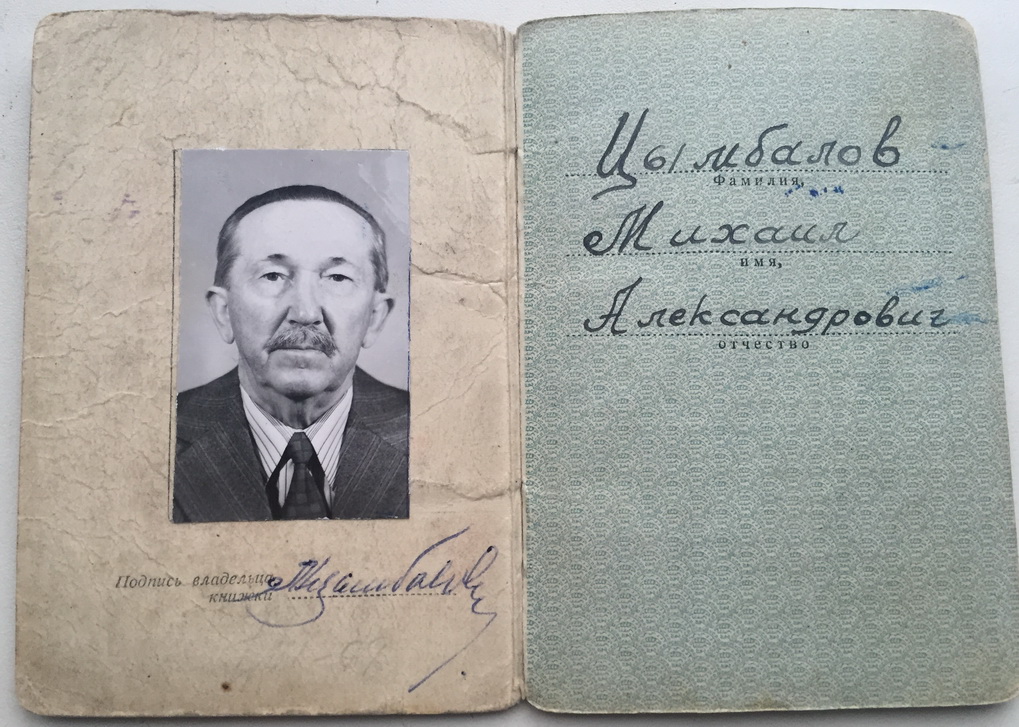 Подпись владельца
книжки
МЦымбалов
Цымбалов
Фамилия,
Михаил
имя,
Александрович
отчество